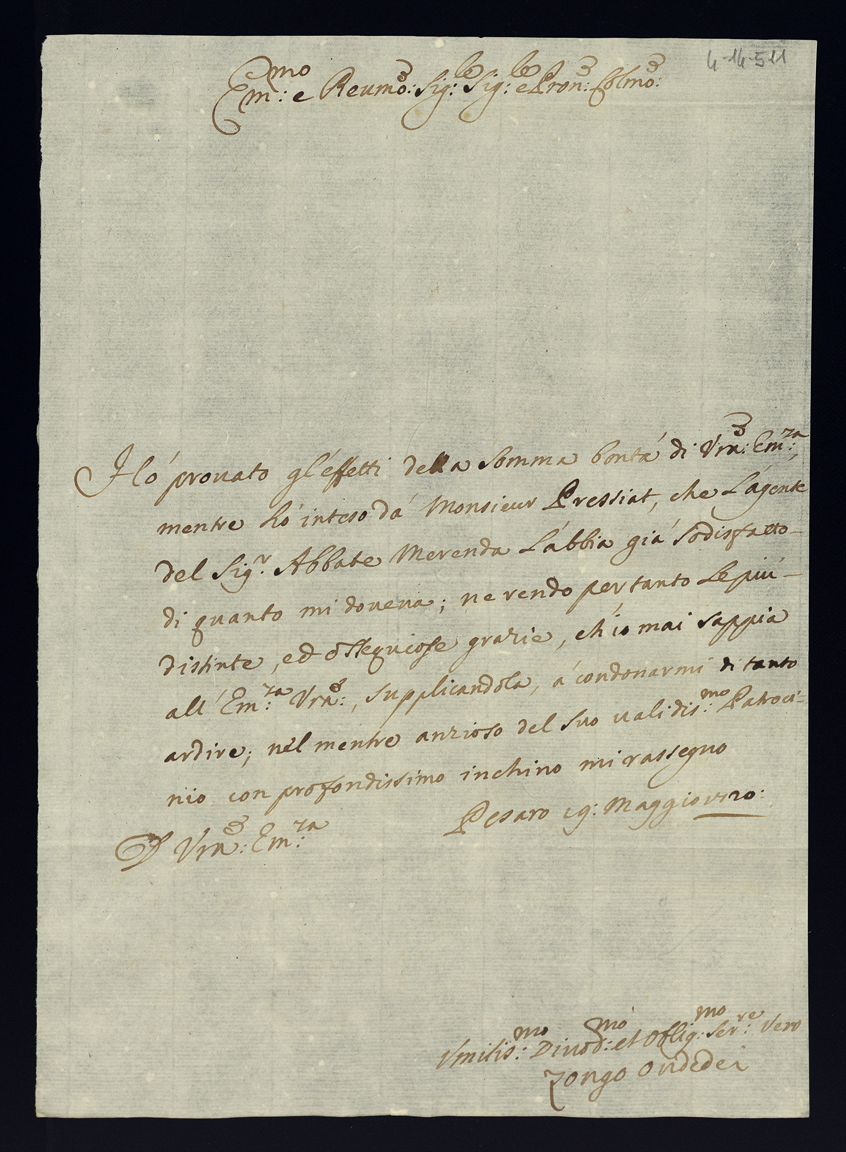 4-14-511
Em:mo e Reumo: Sig:re Sig:re e Pron: Colmo:
Hó prouato gl'effetti della somma bontá di Vra: Em:za,
mentre hó inteso dá Monsieur Pressiat, che L'ágente
del Sig.r Abbate Merenda L'abbia giá sodisfatto
di quanto mi doueua; ne rendo pertanto Le piú
distinte, ed ossequiose grazie, ch'io mai sappia
all' Em:za Vra:, supplicandola, á condonarmi di tanto
ardire; nel mentre anzioso del suo ualidis:mo Patroci-
nio con profondissimo inchino mi rassegno
D Vra: Em:za
Pesaro 19: Maggio 1720:
Vmilis:mo Diuod:mo et Oblig:mo Ser:re Vero
Zongo Ondedei